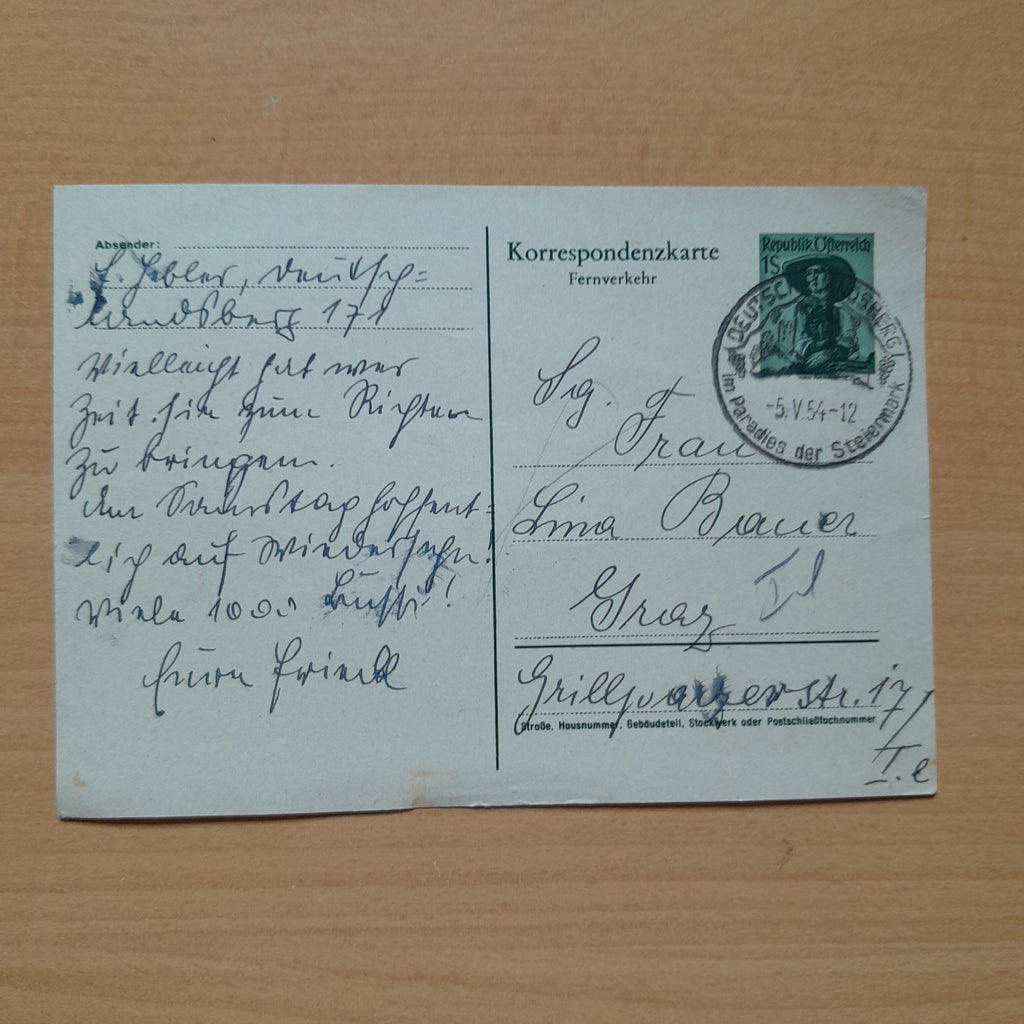 Absender:
F. Hebler, Deutsch=
landsberg 171
Vielleicht hat wer
Zeit hin zum Richten
zu bringen.
Am Samstag hoffent=
lich auf Wiedersehn!
Viele 1000 Bussi!
Eure Friedl
Korrespondenzkarte
Fernverkehr
Republik Österreich
1S
DEUTSCHLANDSBERG
-5.V.54-12
im Paradies der Steiermark
Sg.
Frau
Lina Bauer
Graz
Grillparzerstr. 17/
Straße, Hausnummer, Gebäudeteil, Stockwerk oder Postschließfachnummer
I.